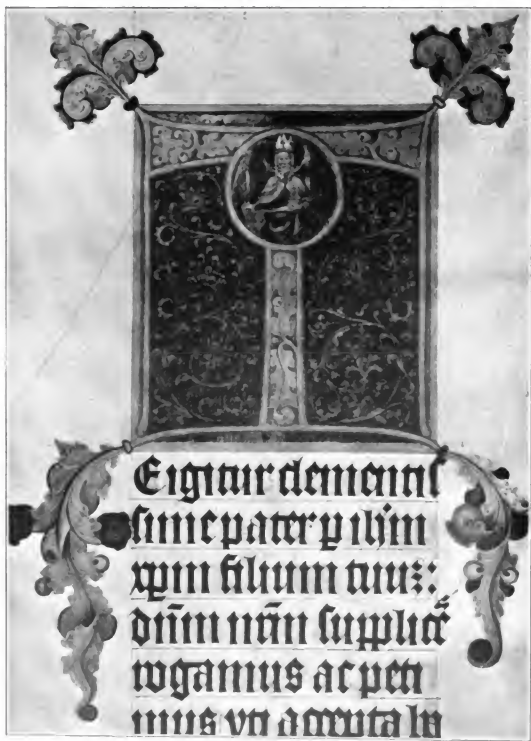 T
E igitur clementi
ssime pater p ihm
xpm filium tuuz:
dn̄m nr̄m supplicē
rogamus ac peti
mus vti accepta ha